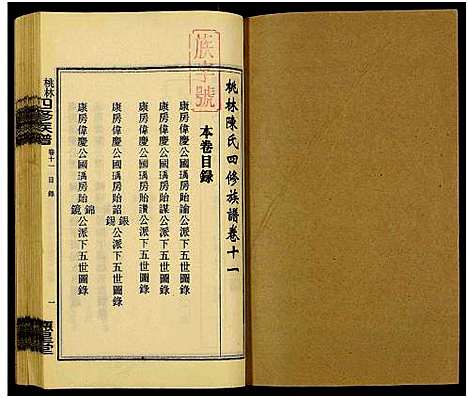 桃林陳氏四修族譜卷十一
族字號
本卷目錄
康房偉慶公國瑀房貽諭公派下五世圖錄
康房偉慶公國瑀房貽謀公派下五世圖錄
康房偉慶公國瑀房貽讚公派下五世圖錄
康房偉慶公國瑀房貽詔銀錫公派下五世圖錄
康房偉慶公國瑀房貽錦鏡公派下五世圖錄
桃林四修族譜
卷十一 目錄
一